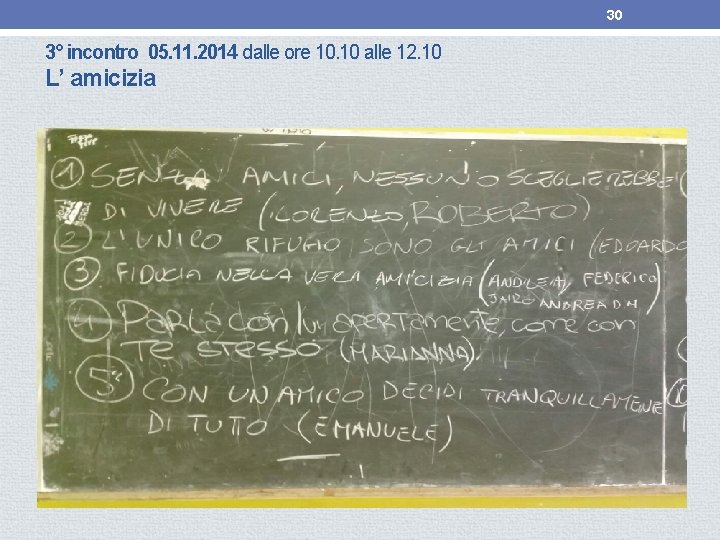 30
3° incontro 05.11.2014 dalle ore 10.10 alle 12.10
L’ amicizia
1 SENZA AMICI, NESSUNO SCEGLIEREBBE
DI VIVERE (LORENZO, ROBERTO)
2 L'UNICO RIFUGIO SONO GLI AMICI (EDOARDO
3 FIDUCIA NELLA VERA AMICIZIA (ANDREA, FEDERICO
JAIRO ANDREA D M)
4 PARLA CON LUI APERTAMENTE, COME CON
TE STESSO (MARIANNA).
5 CON UN AMICO DECIDI TRANQUILLAMENE
DI TUTTO (EMANUELE)